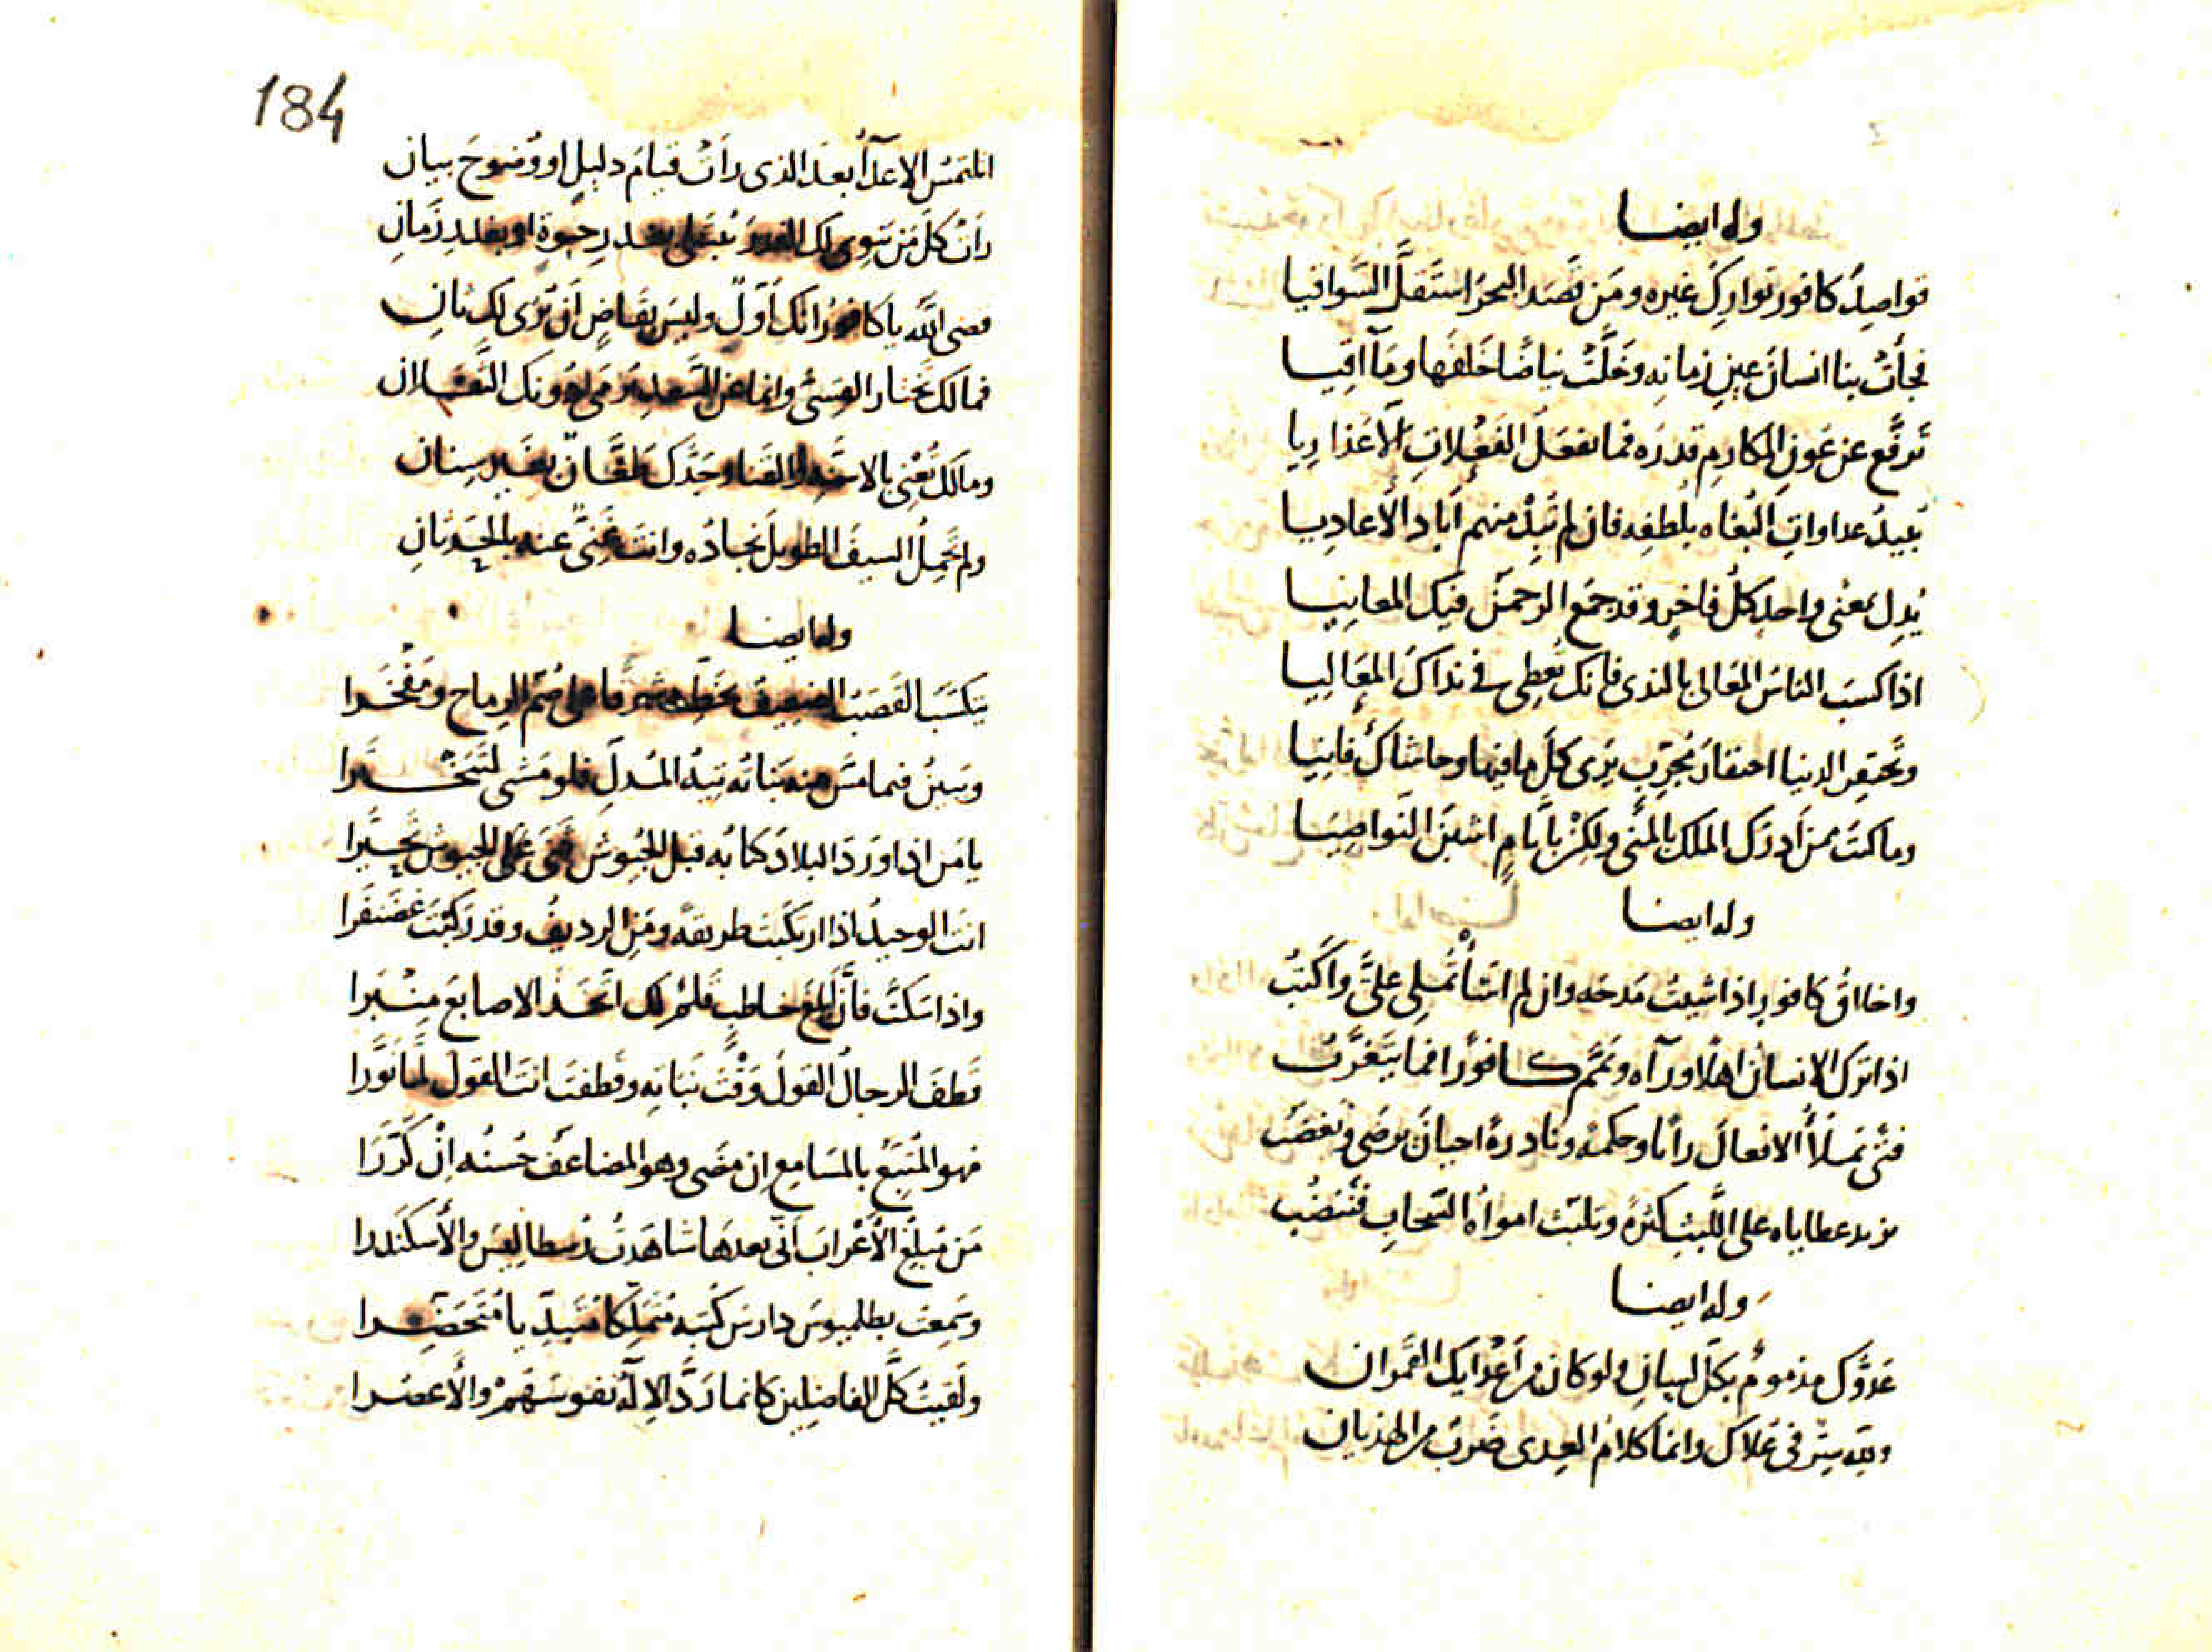 وله ايضا
قواصِدَ كافور توارِكَ غيره ومَن قصَد البحرَ استَقلَّ السَّواقيا
فجأتْ بنا انسانَ عينِ زمانِه وخَلَّتْ بياضًا خَلفَها ومآاقيا
تَرفَّع عن عَونِ المكارِم قدرُه فما يفعَلُ الفَعْلاتِ الّا عَذارِيا
يُبيدُ عداواتِ البُغاه بلطفِه فان لم تَبِدْ منهم اَباد الاعادِيا
يُدِل بمعنًى واحدٍ كلُّ فاخرٍ وقد جمَع الرحمنُ فيك المعانِيا
اذا كسبَ الناسُ المَعالى بالندى فانك تُعطى فى نداكَ المعَالِيا
وتحتقِر الدنيا احتقارَ مُجرِّبٍ يَرى كلَّ ما فيها وحاشاكَ فانِيا
وما كنتَ ممن اَدرَك الملكَ بالمنَى ولكِنْ باَيّامٍ اشَبنَ النَواصِيَا
وله ايضا
واخلاقُ كافورٍ اذا شيتُ مَدحَه وان لم اشَأْ تُملِى علىَّ واَكتبُ
اذا ترَك الانسانُ اهلًا ورآه ويَمَّم كافورًا فما يتَغرَّبُ
فتًى يَملأُ الافعالَ رأيا وحكمةً ونادرةً احيانَ يرضَى ويَغضَبُ
يزيد عطاياه على اللَّبثِ كثرةً وتلبَث امواهُ السَّحابِ فتَنضُبُ
وله ايضا
عَدوُّك مذمومٌ بكلِّ لسانِ ولو كان من اَعْدايِك القَمرانِ
ولله سِرٌّ فى عُلاكَ وانما كلامُ العِدى ضَربٌ من الهذيانِ
184
اتلتمَسُ الاعدآأُ بعدَ الذى رأتْ قيامَ دليلٍ او وُضوحَ بيانِ
رأتْ كلَّ مَن ينوِى لك الغدرَ يُبتلَى بغدرِ حيوةٍ او بغدرِ زَمانِ
قضى اللّهُ يا كافورُ انك اَوّلٌ وليسَ بقاضٍ اَن يُرَى لك ثانِ
فمالَك تختار القِسىَّ وانما عن السَّعدِ يُرمَى دُونك الثَّقلانِ
ومالَك تُعْنَى بالاسنّةِ والقَنا وجَدُّك طَعّانٌ بغَيرِ سِنانِ
ولم تَحمِلُ السيفَ الطويلَ نجادُه وانتَ غنِىٌّ عنه بالحَدَثانِ
وله ايضا
يتكسَّبُ القَصَبُ الضعيفُ بخَطِّه شرفًا على صُمِّ الرِماح ومَفْخَرا
ويَبينُ فيما مَسَّ منه بَنانُه تِيهُ المُدِلِّ فلو مَشَى لتَبَخْتَرا
يا مَن اذا ورَدَ البلادَ كتابُه قبل الجُيوشِ ثنَى على الجيوشَ تحيُّرا
انتَ الوحيدُ اذا ارتكَبتَ طريقةً ومَنِ الرديفُ وقد ركبْتَ غضَنفَرا
واذا سَكتَّ فاَنَّ ابلَغَ خاطبٍ قلمٌ لك اتّخَذَ الاصابعَ مِنْبَرا
قَطَفَ الرجالُ القولَ وَقْتَ نَباتِه وقطفتَ انتَ القولَ لمّا نَوَّرا
فهو المُتبَّعُ بالمَسَامِع اِن مضَى وهو المضاعَفُ حُسنُه اِنْ كَرَّرَا
مَن مُبلِغُ الاَعْرابِ اَنّى بعدَها شاهَدتُ رَسطالِيسَ والاَسكَندرا
وسَمِعتُ بطلميوسَ دارسَ كُتبِه مُتملِّكًا مُتبدّيًا مُتَحَضِّرا
ولَقيتُ كلَّ الفاضِلِين كانما رَدَّ الاِلهُ نفوسَهُمْ والاَعصُرا